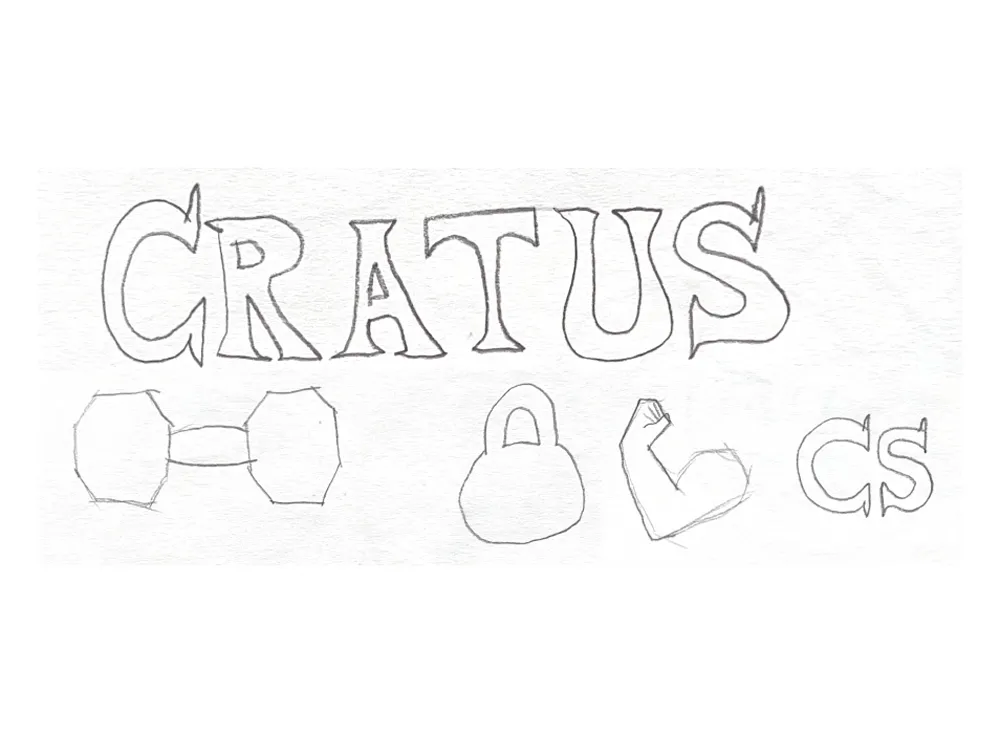 CRATUS
CS